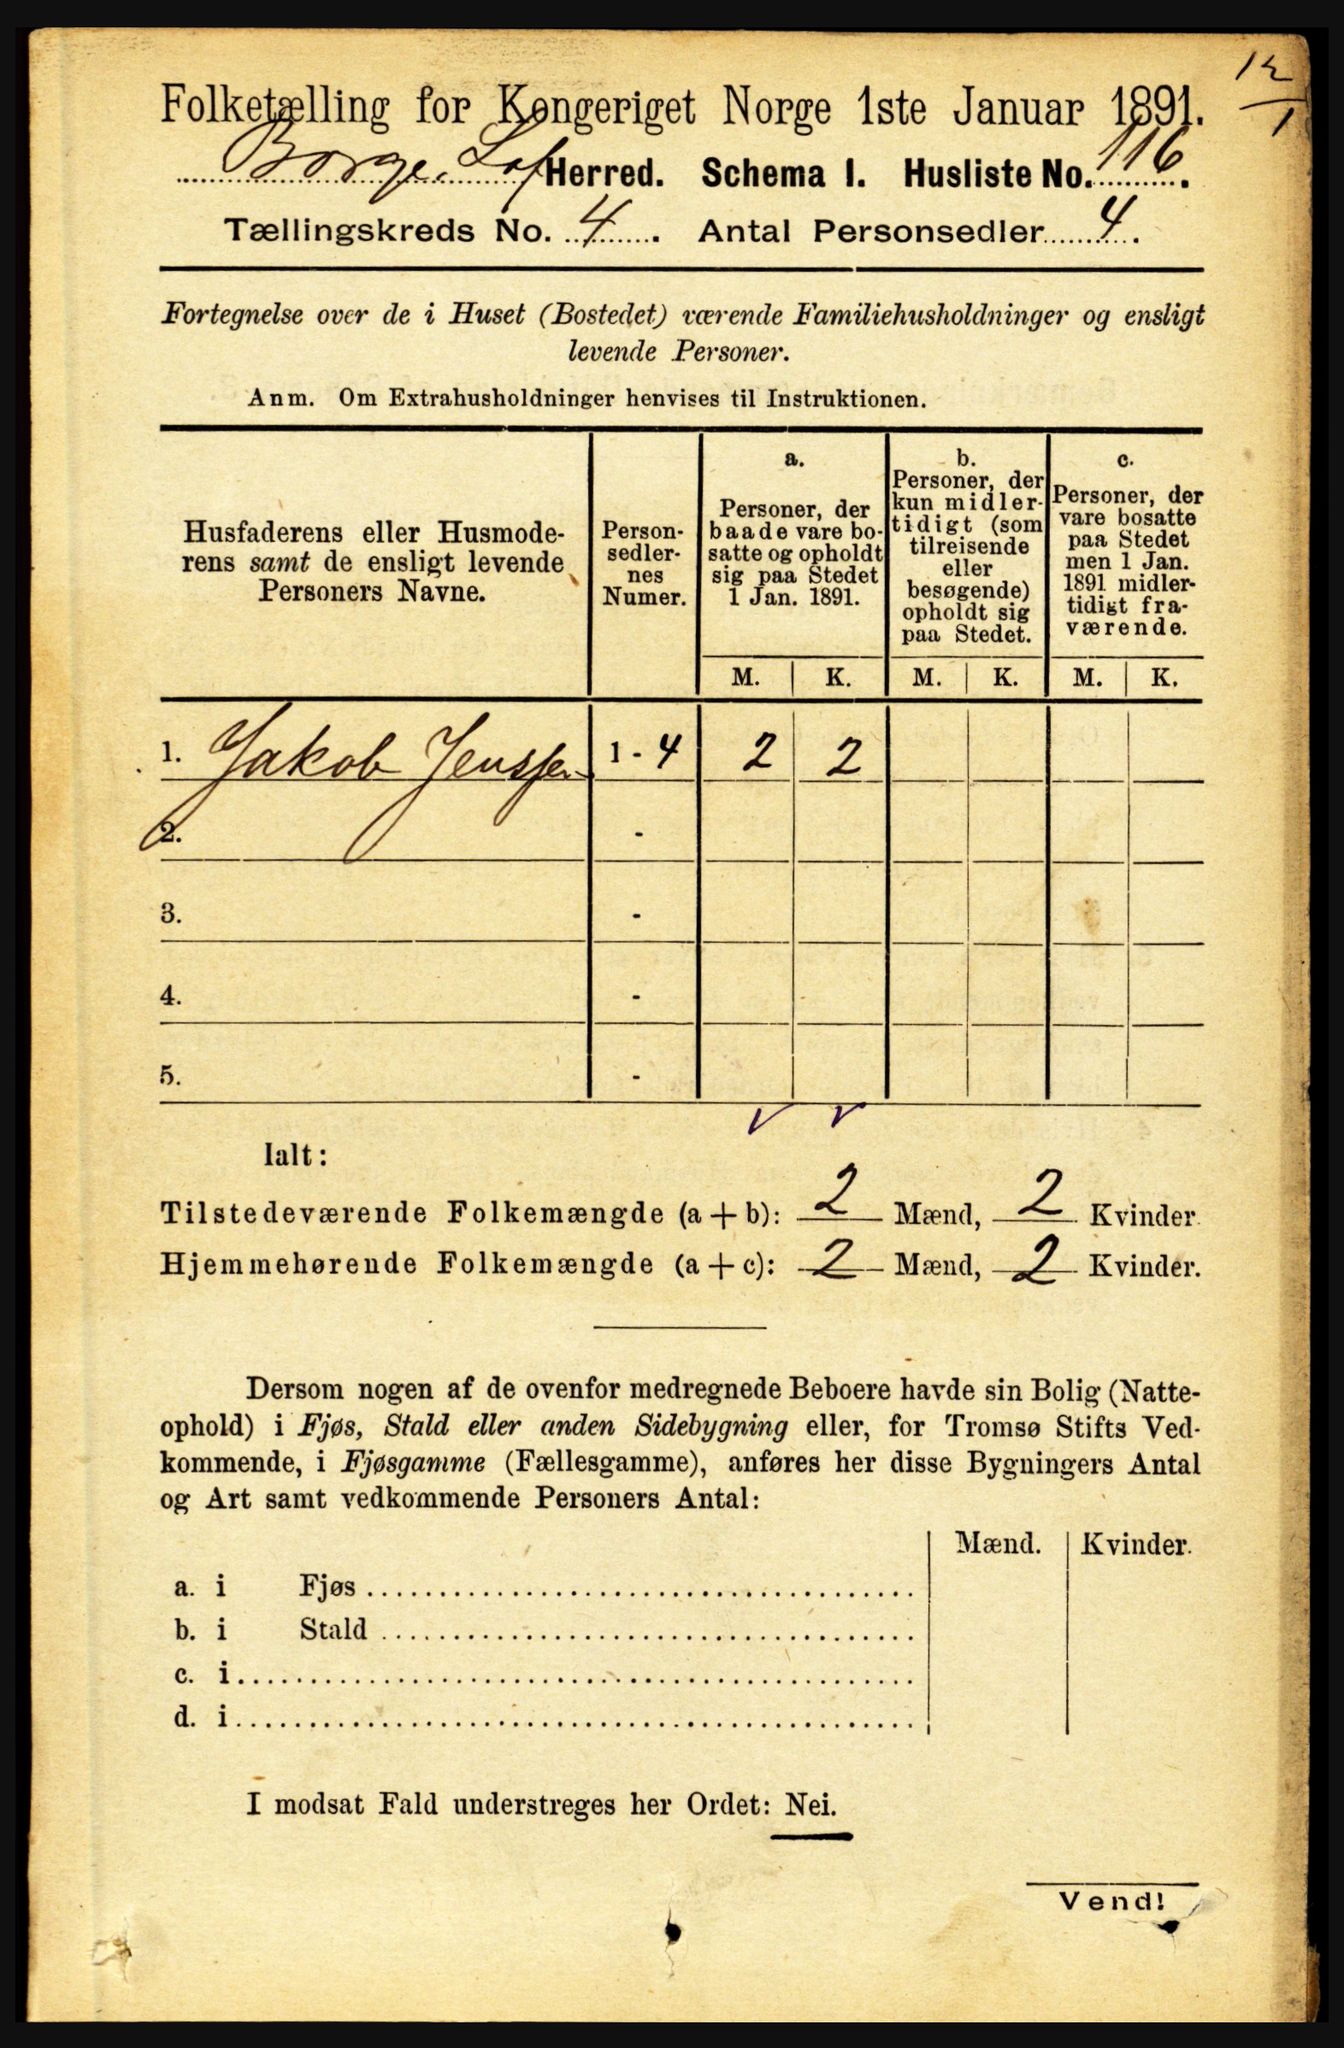 12/1
Folketælling for Kongeriget Norge 1ste Januar 1891.
Borge Lof Herred. Schema I. Husliste No. 116.
Tællingskreds No. 4. Antal Personsedler 4.
Fortegnelse over de i Huset (Bostedet) værende Familiehusholdninger og ensligt
levende Personer.
Anm. Om Extrahusholdninger henvises til Instruktionen.
Husfaderens eller Husmode-
rens samt de ensligt levende
Personers Navne.
Person-
sedler-
nes
Numer.
a.
Personer, der
baade vare bo-
satte og opholdt
sig paa Stedet
1 Jan. 1891.
b.
Personer, der
kun midler-
tidigt (som
tilreisende
eller
besøgende)
opholdt sig
paa Stedet.
c.
Personer, der
vare bosatte
paa Stedet
men 1 Jan.
1891 midler-
tidigt fra-
værende.
M. K. M. K. M. K.
1. Jakob Jenssen 1 - 4 2 2
2. -
3. -
4. -
5. -
Ialt:
Tilstedeværende Folkemængde (a + b): 2 Mænd, 2 Kvinder.
Hjemmehørende Folkemængde (a + c): 2 Mænd, 2 Kvinder.
Dersom nogen af de ovenfor medregnede Beboere havde sin Bolig (Natte-
ophold) i Fjøs, Stald eller anden Sidebygning eller, for Tromsø Stifts Ved-
kommende, i Fjøsgamme (Fællesgamme), anføres her disse Bygningers Antal
og Art samt vedkommende Personers Antal:
Mænd. Kvinder.
a. i Fjøs
b. i Stald
c. i
d. i
I modsat Fald understreges her Ordet: Nei.
Vend!